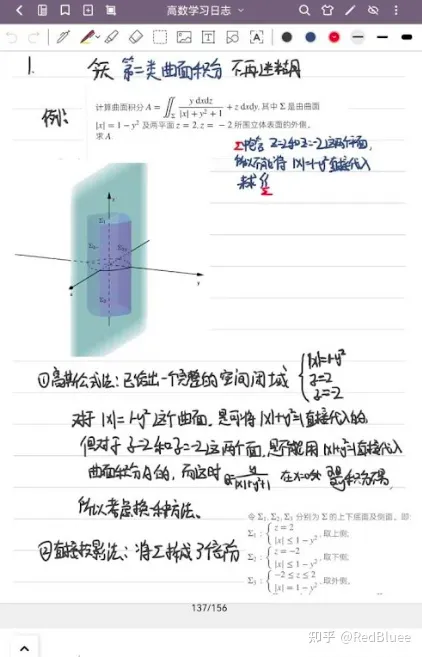 高数学习日志
1. 今天 第二类曲面积分 不再迷糊
例:
计算曲面积分 A = ∬_Σ y dxdz / (|x| + y² + 1) + z dxdy, 其中 Σ 是由曲面
|x| = 1 − y² 及两平面 z = 2, z = − 2 所围立体表面的外侧。
求 A
Σ包含 z=2和z=-2这两个面,
所以不能将 |x|=1-y² 直接代入
Σ₁
z
x
y
①高斯公式法: 已给出一个完整的空间闭域 { |x|=1-y²
z=2
z=-2
对于 |x|=1-y² 这个曲面, 是可将 |x|+y²=1直接代入的
但对于 z=2和z=-2这两个面, 是不能用 |x|+y²=1直接代入
曲面积分A的, 而这时 y/(|x|+y²+1) 在x=0处
所以考虑换一种方法、
②直接投影法: 将Σ拆成了3个部分
令 Σ₁, Σ₂, Σ₃ 分别为 Σ 的上下底面及侧面, 即:
Σ₁ : { z = 2
|x| ≤ 1 − y² , 取上侧;
Σ₂ : { z = −2
|x| ≤ 1 − y² , 取下侧;
Σ₃ : { −2 ≤ z ≤ 2
|x| = 1 − y² , 取外侧。
137/156
知乎 @RedBluee